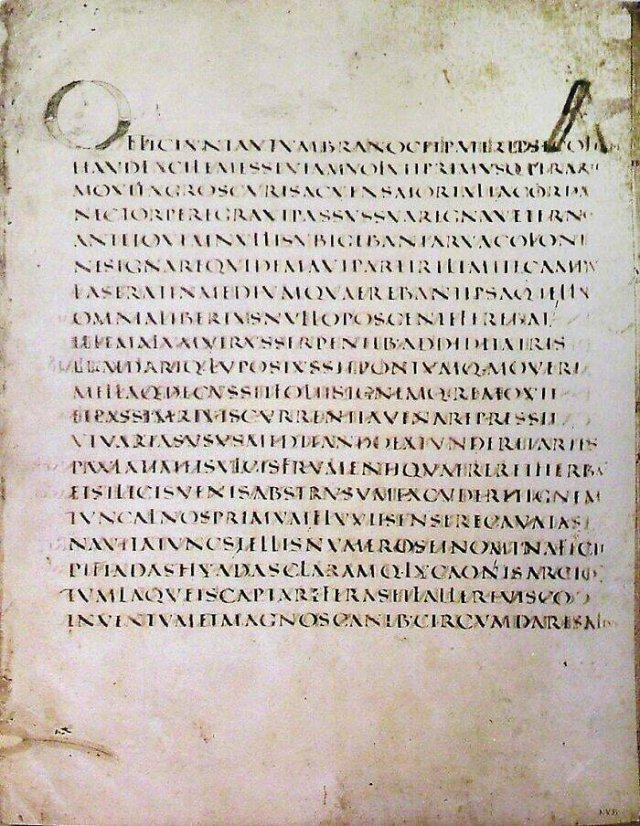 OFFICIUNTAUTUMBRANOCETPATERIPSECOL
HAUDFACILEMESSEVIAMVOLUITPRIMUSQ·PERAR
MOVITAGROSCURISACUENSMORTALIACORDA
NECTORPEREGRAVIPASSUSSUAREGNAVETERNO
ANTEIOVEMNULLISUBIGEBANTARVACOLONI
NESIGNAREQUIDEMAUTPARTIRILIMITECAMPU
FASERATINMEDIUMQUAEREBANTIPSAQ·TELLUS
OMNIALIBERIUSNULLOPOSCENTEFEREBAT
ILLEMALUMVIRUSSERPENTIB·ADDIDITATRIS
PRAEDARIQ·LUPOSIUSSITPONTUMQ·MOVERI
MELLAQ·DECUSSITFOLIISIGNEMQ·REMOVIT
ETPASSIMRIVISCURRENTIAVINAREPRESSIT
UTVARIASUSUSMEDITANDOEXTUNDERETARTIS
PAULATIMETSULCISFRUMENTIQUAERERETHERBA
ETSILICISVENISABSTRUSUMEXCUDERETIGNEM
TUNCALNOSPRIMUMFLUVIISENSERECAVATAS
NAVITATUNCSTELLISNUMEROSETNOMINAFECIT
PLEIADASHYADASCLARAMQ·LYCAONISARCTO
TUMLAQUEISCAPTAREFERASETFALLEREVISCO
INVENTUMETMAGNOSCANIB·CIRCUMDARESAL